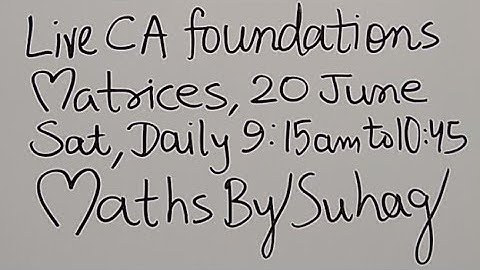 Live CA foundations
Matrices, 20 June
Sat, Daily 9:15am to 10:45
Maths By Suhag